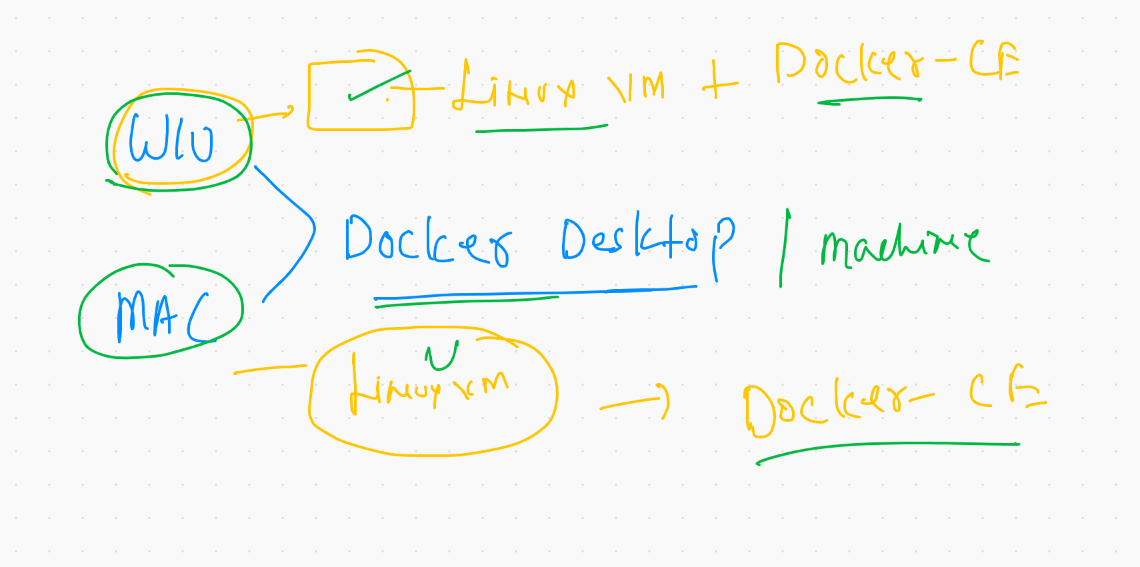 Linux VM + Docker-CE
WIN
Docker Desktop | machine
MAC
Linux VM → Docker-CE